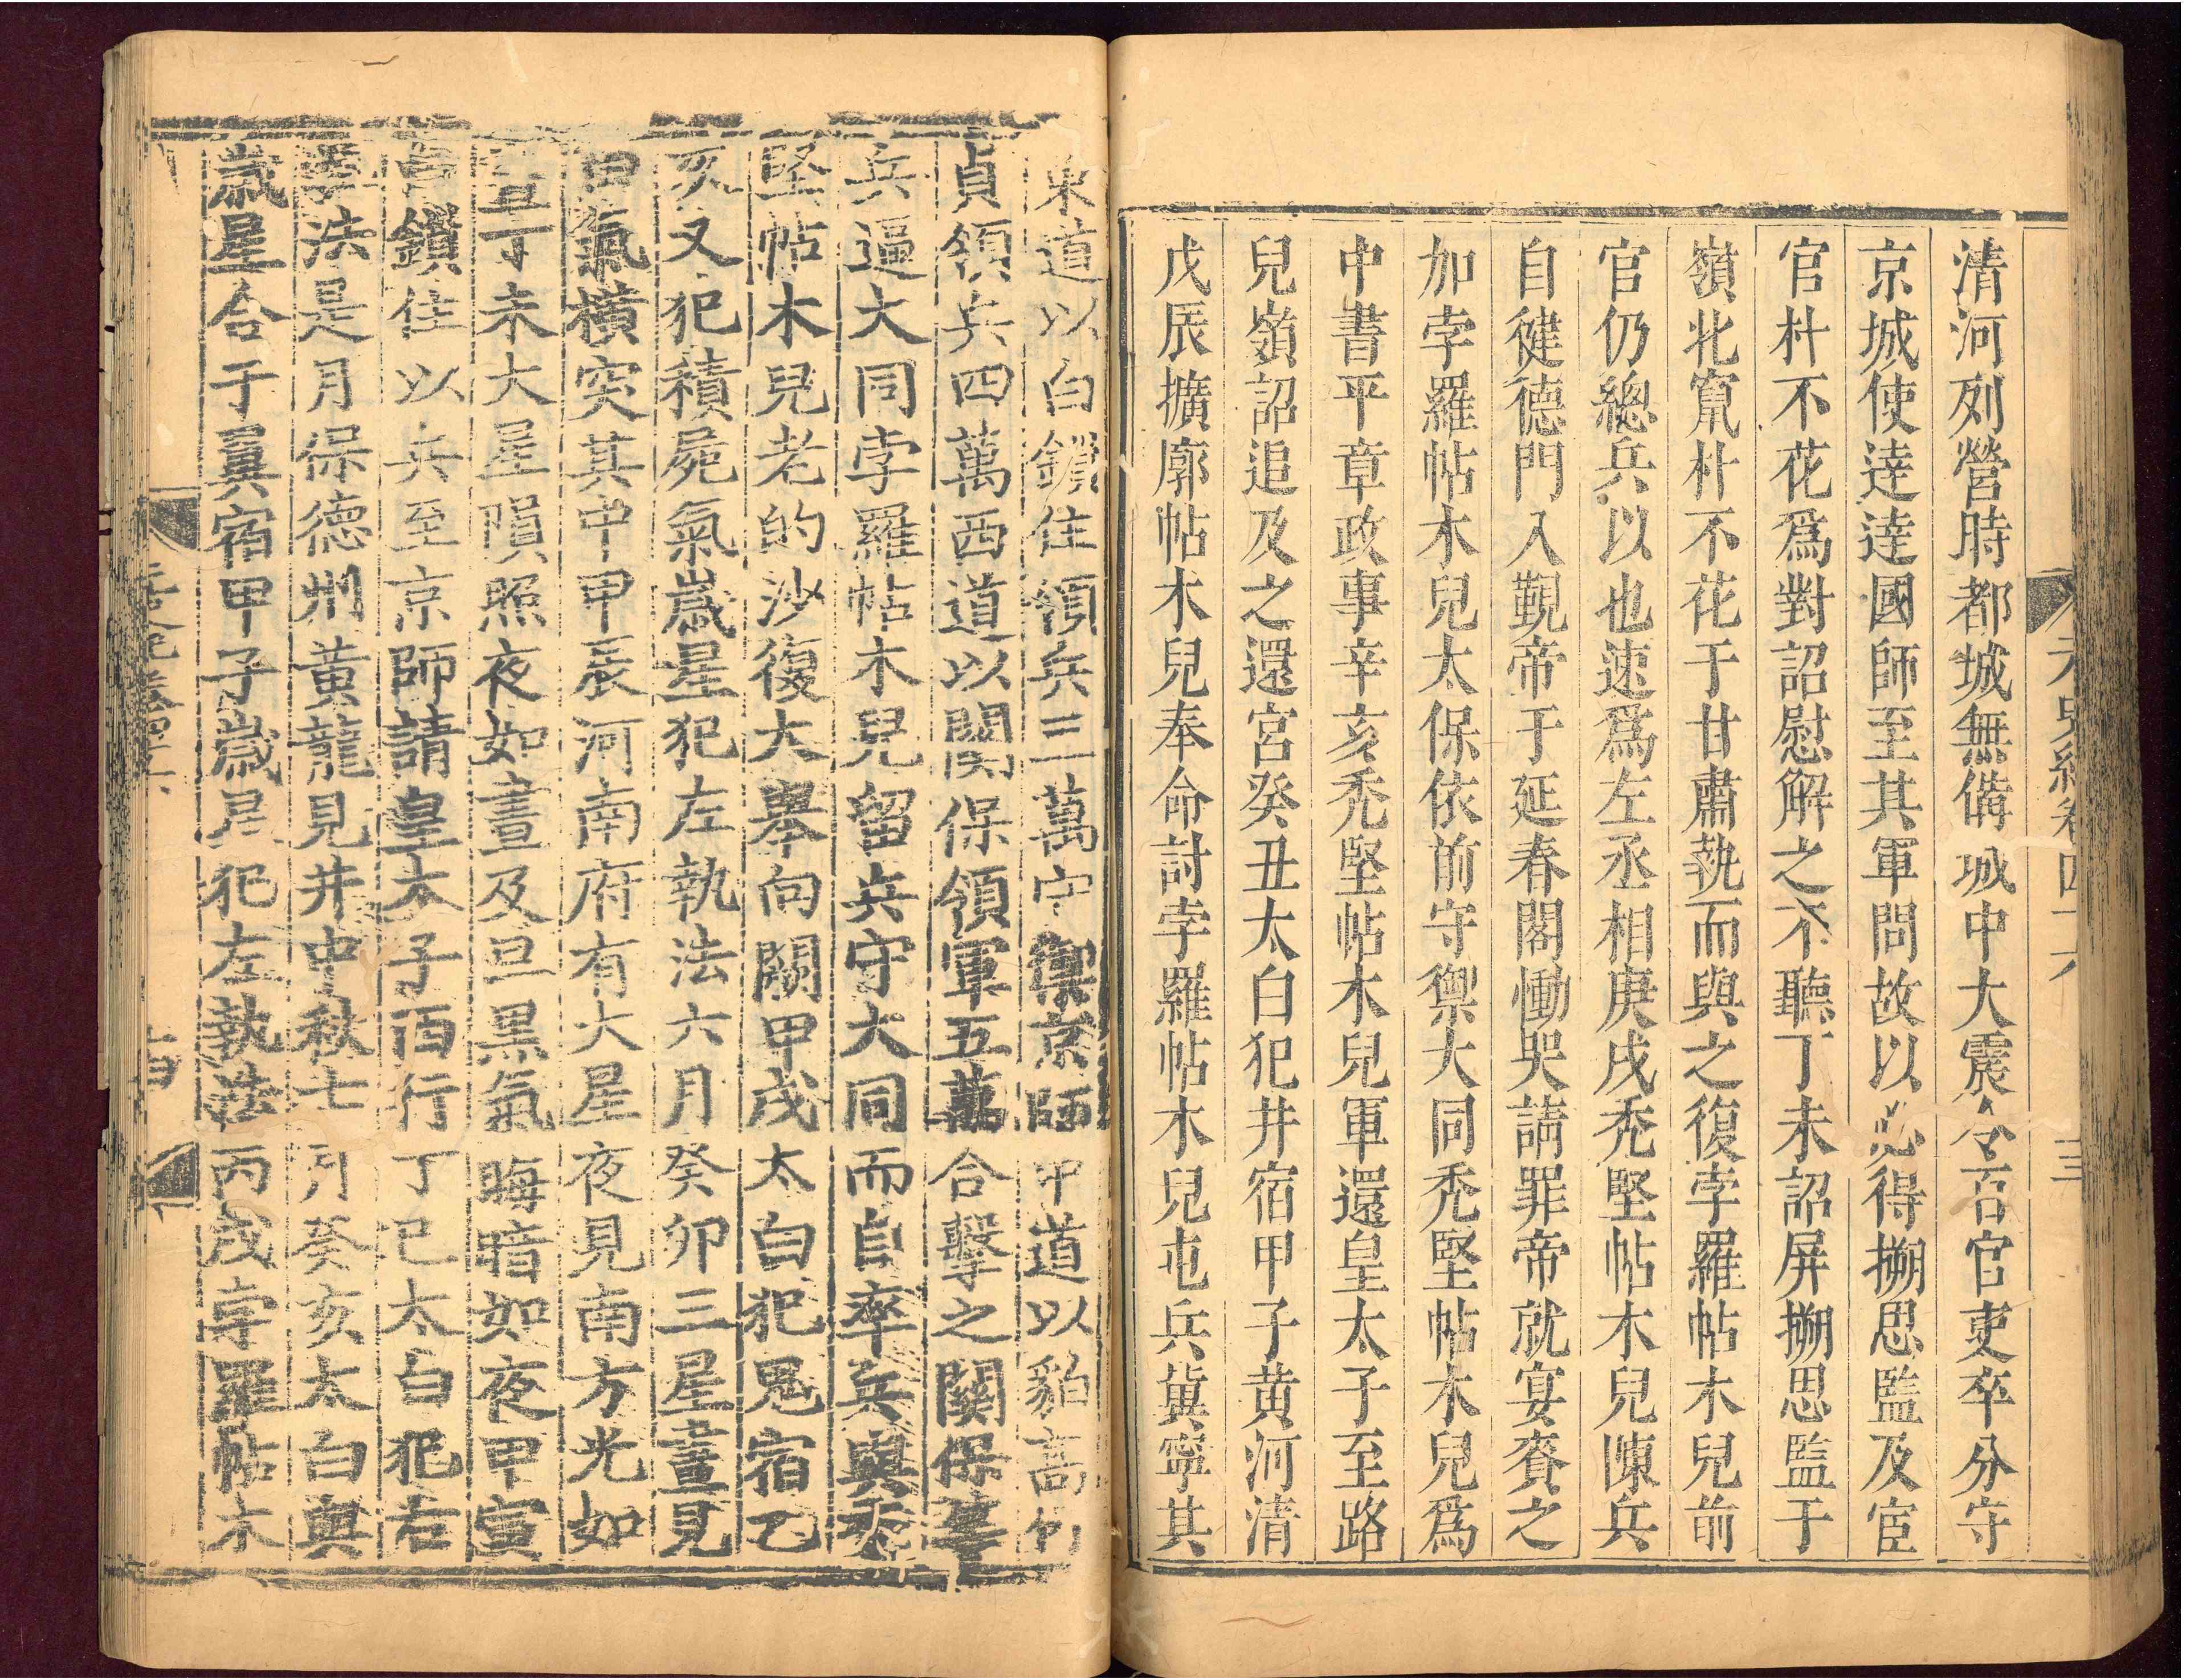 元史紀卷四十六
十三
清河列營時都城無備城中大震令百官吏卒分守
京城使達達國師至其軍問故以必得搠思監及宦
官朴不花爲對詔慰解之不聽丁未詔屏搠思監于
嶺北竄朴不花于甘肅執而與之復孛羅帖木兒前
官仍總兵以也速爲左丞相庚戌禿堅帖木兒陳兵
自健德門入覲帝于延春閣慟哭請罪帝就宴賚之
加孛羅帖木兒太保依前守禦大同禿堅帖木兒爲
中書平章政事辛亥禿堅帖木兒軍還皇太子至路
兒嶺詔追及之還宮癸丑太白犯井宿甲子黃河清
戊辰擴廓帖木兒奉命討孛羅帖木兒屯兵冀寧其
東道以白鎖住領兵三萬守禦京師中道以貊高竹
貞領兵四萬西道以關保領軍五萬合擊之關保等
兵逼大同孛羅帖木兒留兵守大同而自率兵與禿
堅帖木兒老的沙復大舉向闕甲戌太白犯鬼宿乙
亥又犯積屍氣歲星犯左執法六月癸卯三星晝見
白氣橫突其中甲辰河南府有大星夜見南方光如
晝丁未大星隕照夜如晝及旦黑氣晦暗如夜甲寅
白鎖住以兵至京師請皇太子西行丁巳太白犯右
執法是月保德州黃龍見井中秋七月癸亥太白與
歲星合于翼宿甲子歲星犯左執法丙戌孛羅帖木